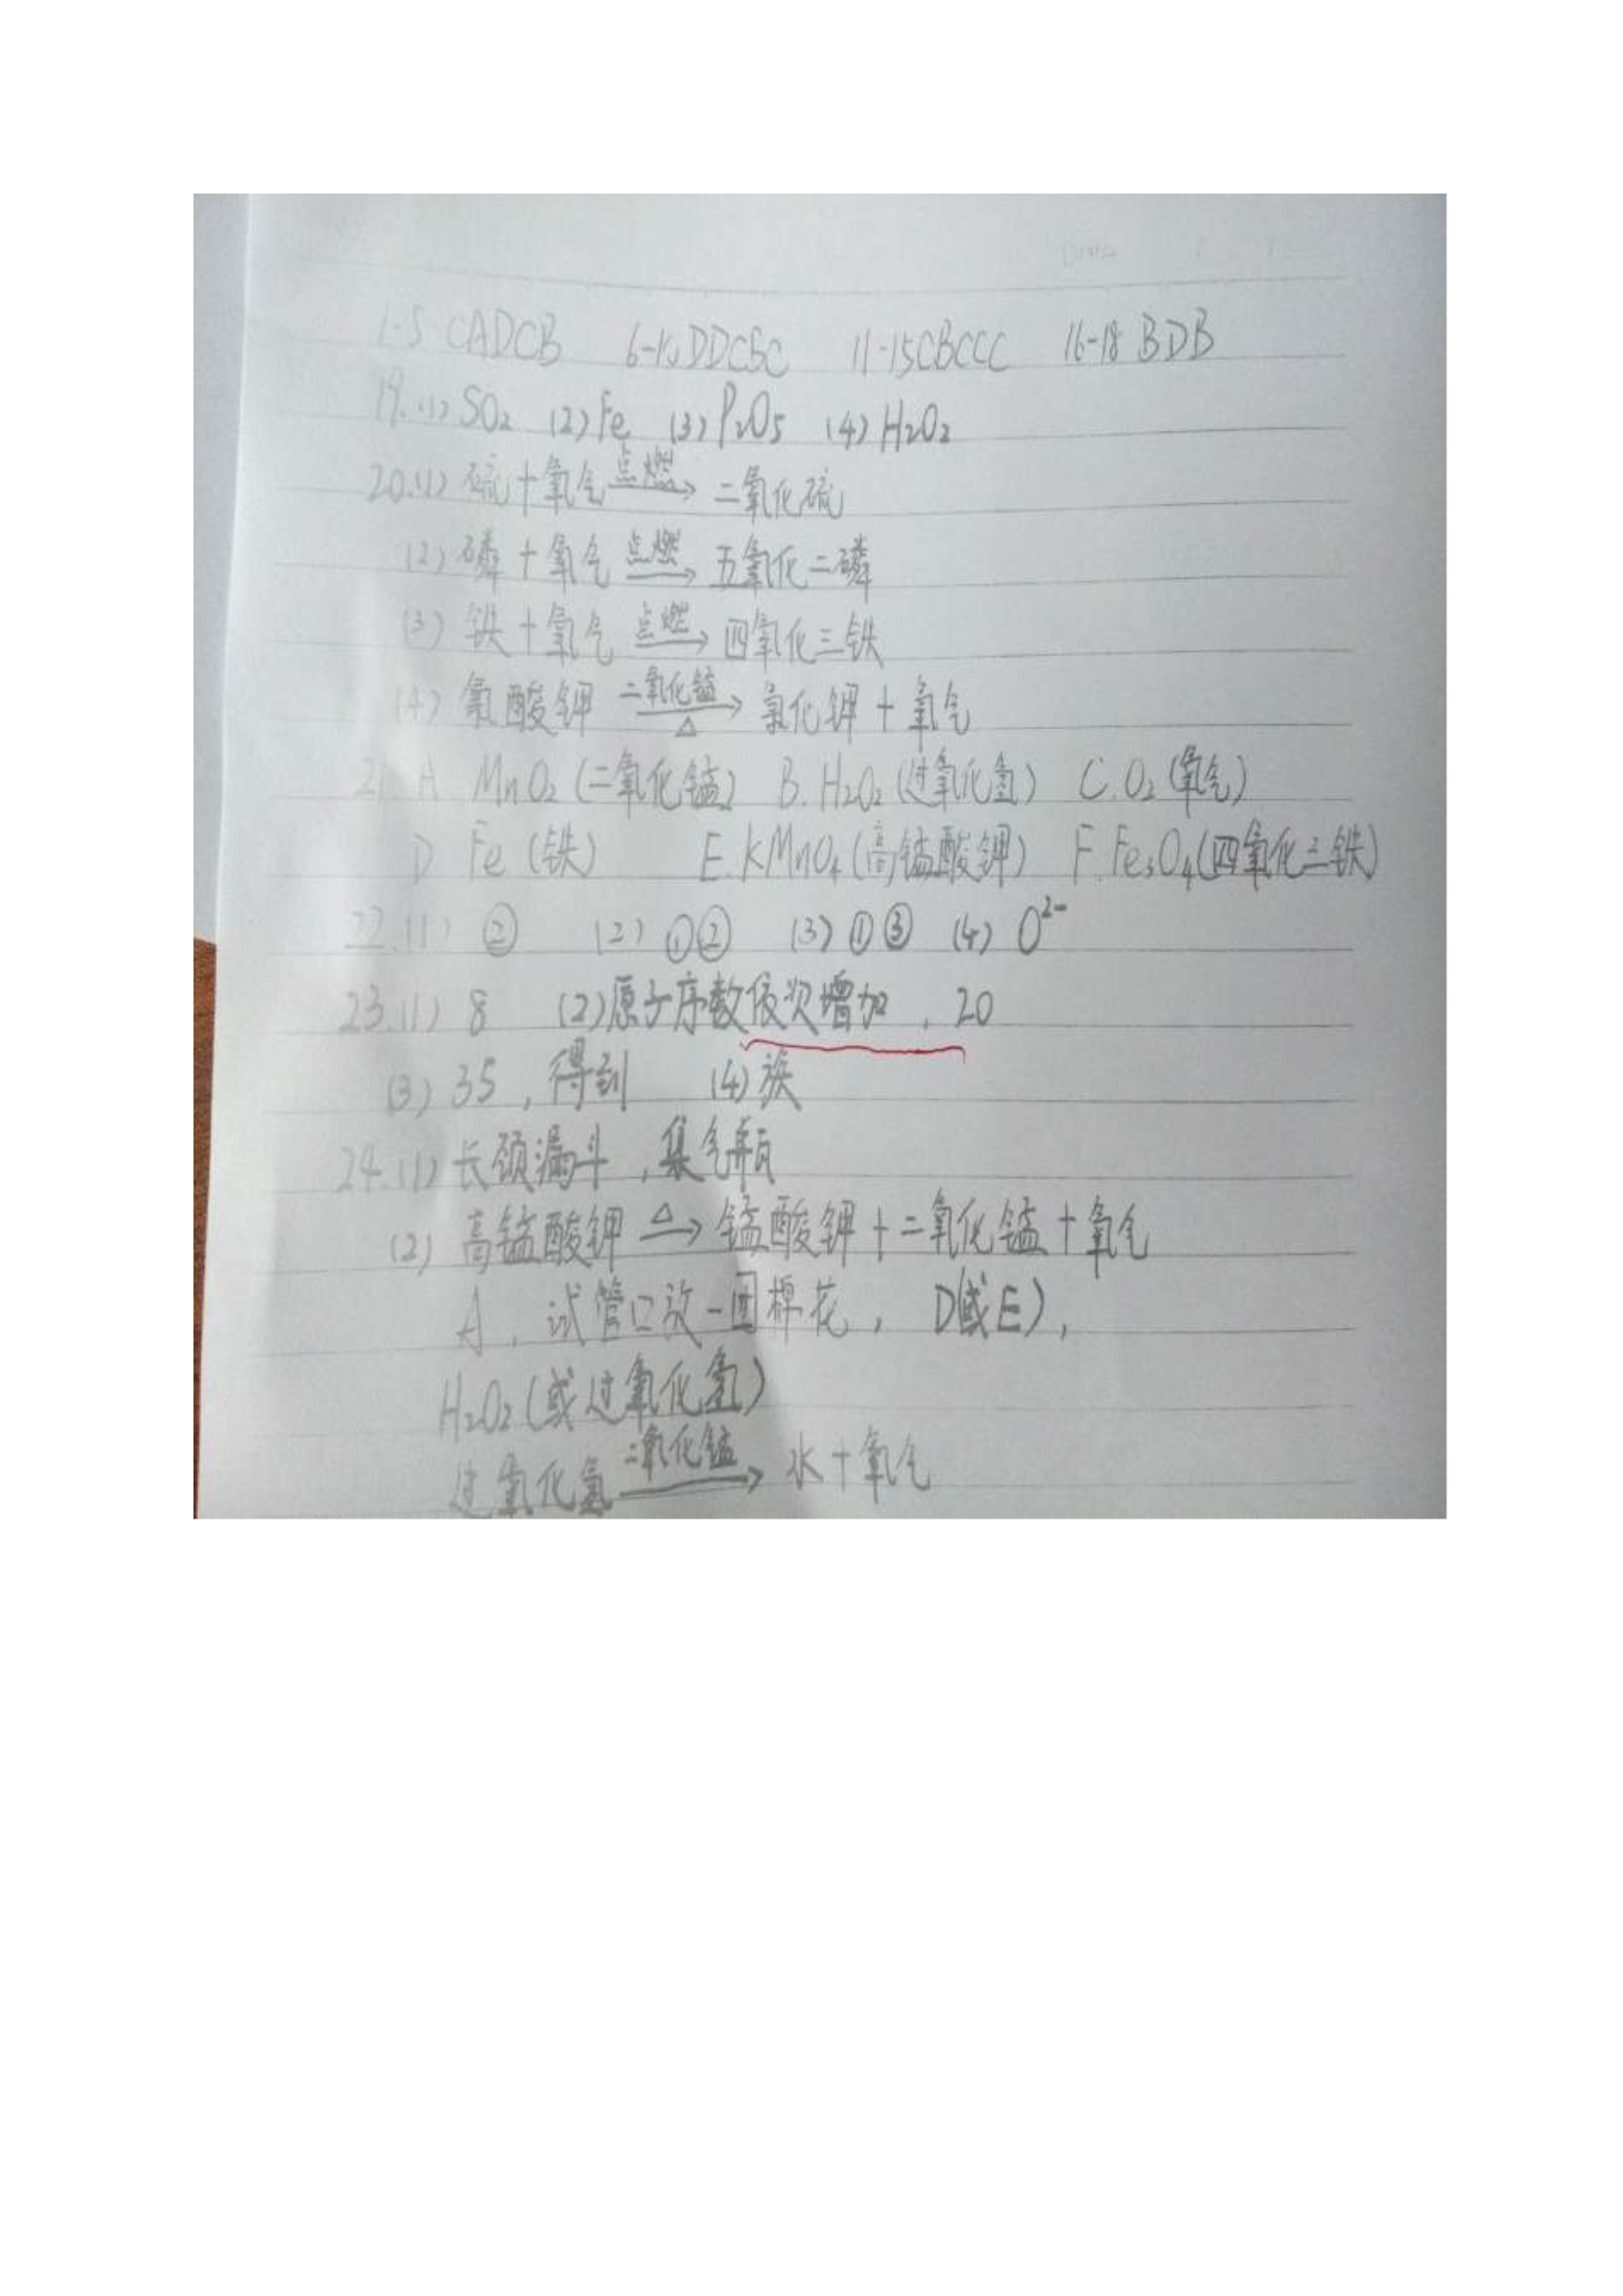 1-5 CADCB 6-10 DDCBC 11-15 CBCCC 16-18 BDB
19.(1) SO₂ (2) Fe (3) P₂O₅ (4) H₂O₂
20.(1) 硫+氧气 点燃→ 二氧化硫
(2) 磷+氧气 点燃→ 五氧化二磷
(3) 铁+氧气 点燃→ 四氧化三铁
(4) 氯酸钾 二氧化锰→△ 氯化钾+氧气
21. A MnO₂(二氧化锰) B. H₂O₂(过氧化氢) C. O₂(氧气)
D Fe(铁) E. KMnO₄(高锰酸钾) F. Fe₃O₄(四氧化三铁)
22.(1) ② (2) ①② (3) ①③ (4) O²⁻
23.(1) 8 (2)原子序数依次增加,20
(3) 35,得到 (4) 族
24.(1) 长颈漏斗,集气瓶
(2) 高锰酸钾 △→ 锰酸钾+二氧化锰+氧气
A,试管口放一团棉花,D(或E),
H₂O₂(或过氧化氢)
过氧化氢 二氧化锰→ 水+氧气